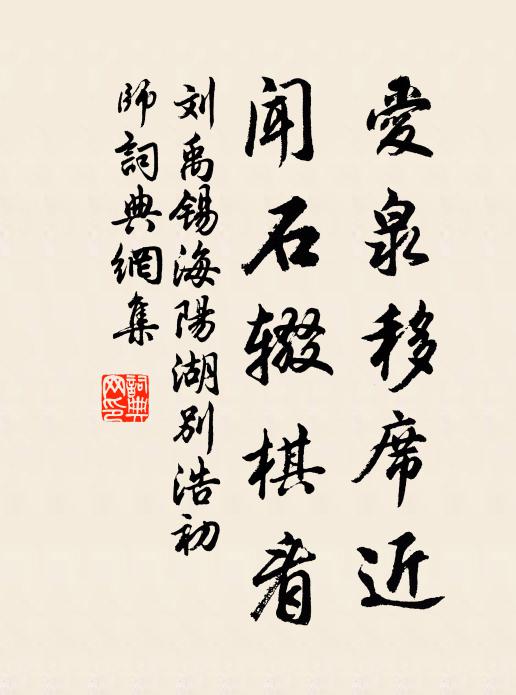 愛泉移席近
闻石辍棋看
刘禹锡海陽湖別浩初
師詞典網集
詞典
网印